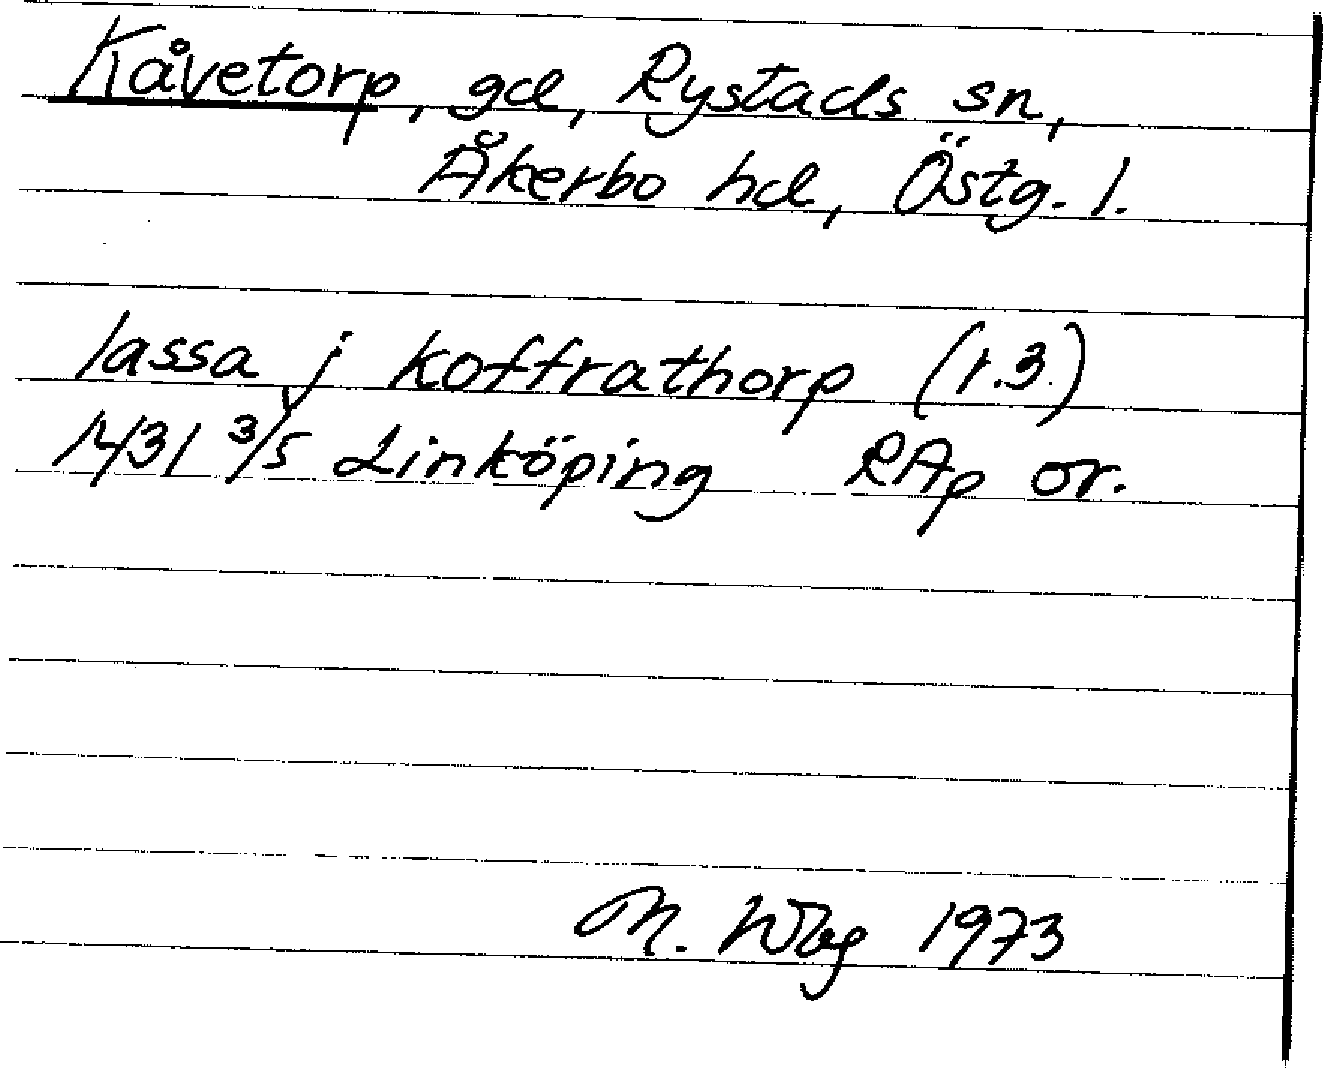 Kåvetorp, gd, Rystads sn,
Åkerbo hd, Östg. l.
lassa j koffrathorp (r.3)
1431 3/5 Linköping RAp or.
M. Wbg 1973